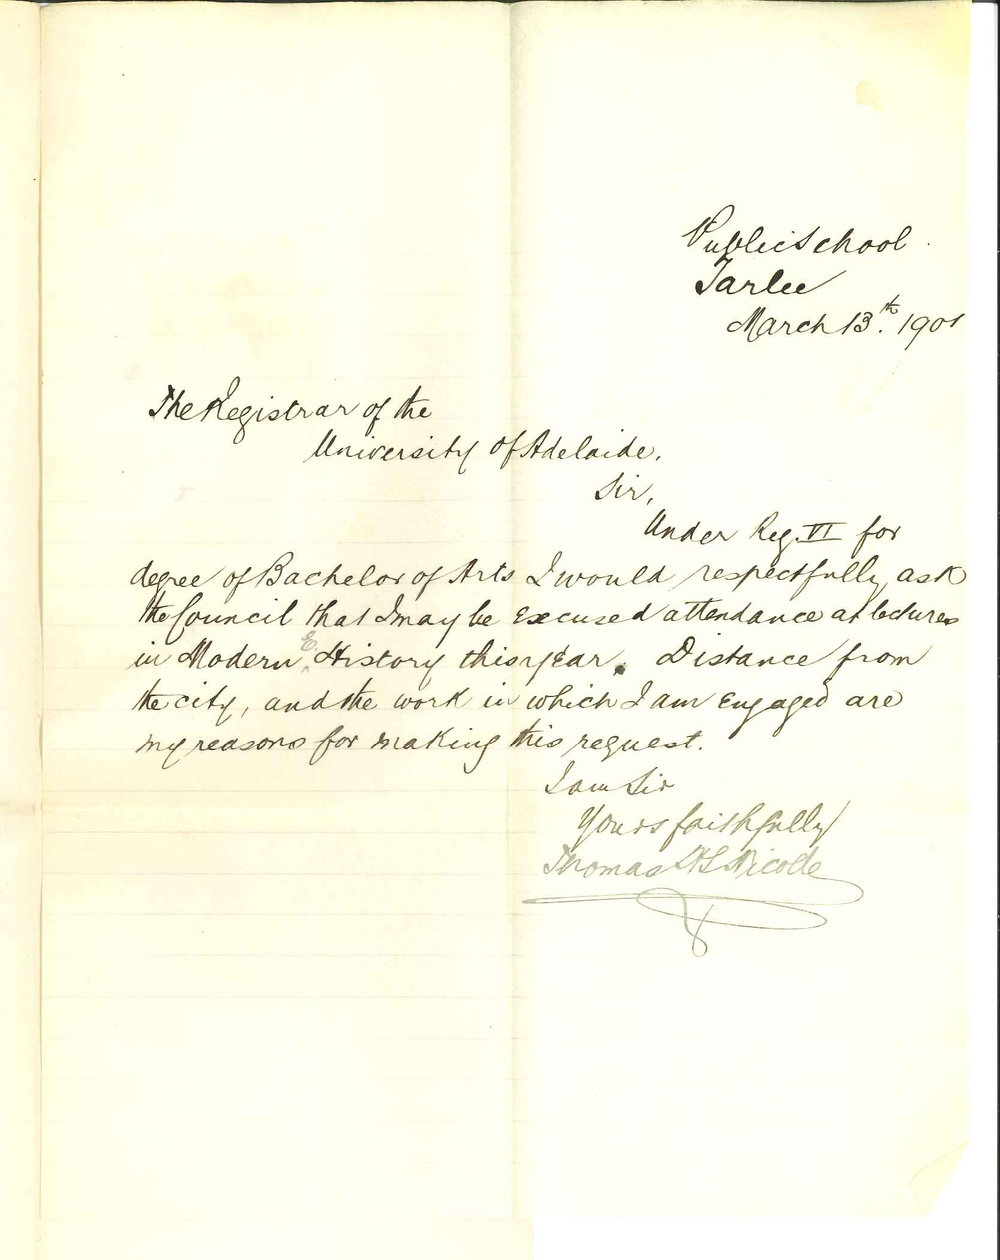 Public School
Tarlee
March 13.th 1901
The Registrar of the
University of Adelaide.
Sir,
Under Reg. VI for
degree of Bachelor of Arts I would respectfully ask
the Council that I may be excused attendance at lectures
in Modern E. History this year. Distance from
the city, and the work in which I am engaged are
my reasons for making this request.
I am Sir
Yours faithfully
Thomas Nicolle